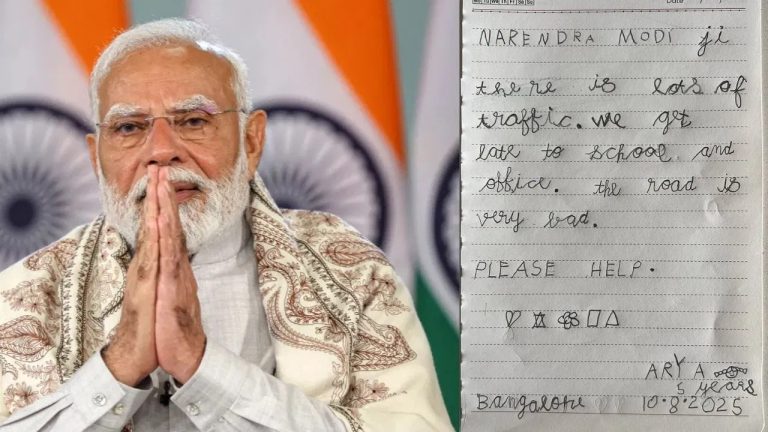 Mo Tu We Th Fr Sa Su
Date
NARENDRA MODI ji
there is lots of
traffic. we get
late to school and
office. the road is
very bad.
PLEASE HELP.
ARYA
5 years
Bangalore 10.8.2025